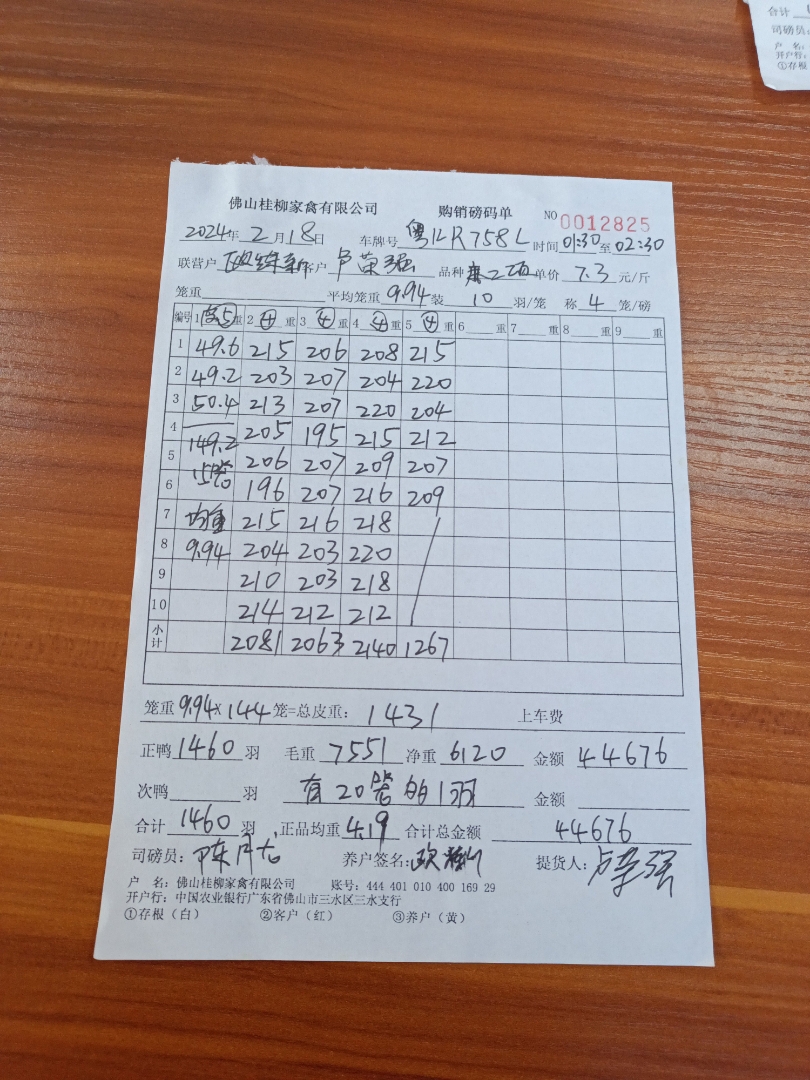 合计
司磅员:
户 名:
开户行:
①存根
佛山桂柳家禽有限公司 购销磅码单 NO 0012825
2024年 2月 18日 车牌号 粤 R758L 时间 01:30 至 02:30
联营户 客户 卢荣强 品种 单价 7.3 元/斤
笼重 平均笼重 9.94 装 10 羽/笼 称 4 笼/磅
编号 1 空5 重 2 4 重 3 4 重 4 4 重 5 4 重 6 重 7 重 8 重 9 重
1 49.6 215 206 208 215
2 49.2 203 207 204 220
3 50.4 213 207 220 204
4 149.2 205 195 215 212
5 15笼 206 207 209 207
6 196 207 216 209
7 均重 215 216 218
8 9.94 204 203 220
9 210 203 218
10 214 212 212
小计 2081 2063 2140 1267
笼重 9.94×144 笼=总皮重: 1431 上车费
正鸭 1460 羽 毛重 7551 净重 6120 金额 44676
次鸭 羽 有20笼的1羽 金额
合计 1460 羽 正品均重 4.19 合计总金额 44676
司磅员: 陈月 养户签名: 提货人: 卢荣强
户 名: 佛山桂柳家禽有限公司 账号: 444 401 010 400 169 29
开户行: 中国农业银行广东省佛山市三水区三水支行
①存根(白) ②客户(红) ③养户(黄)